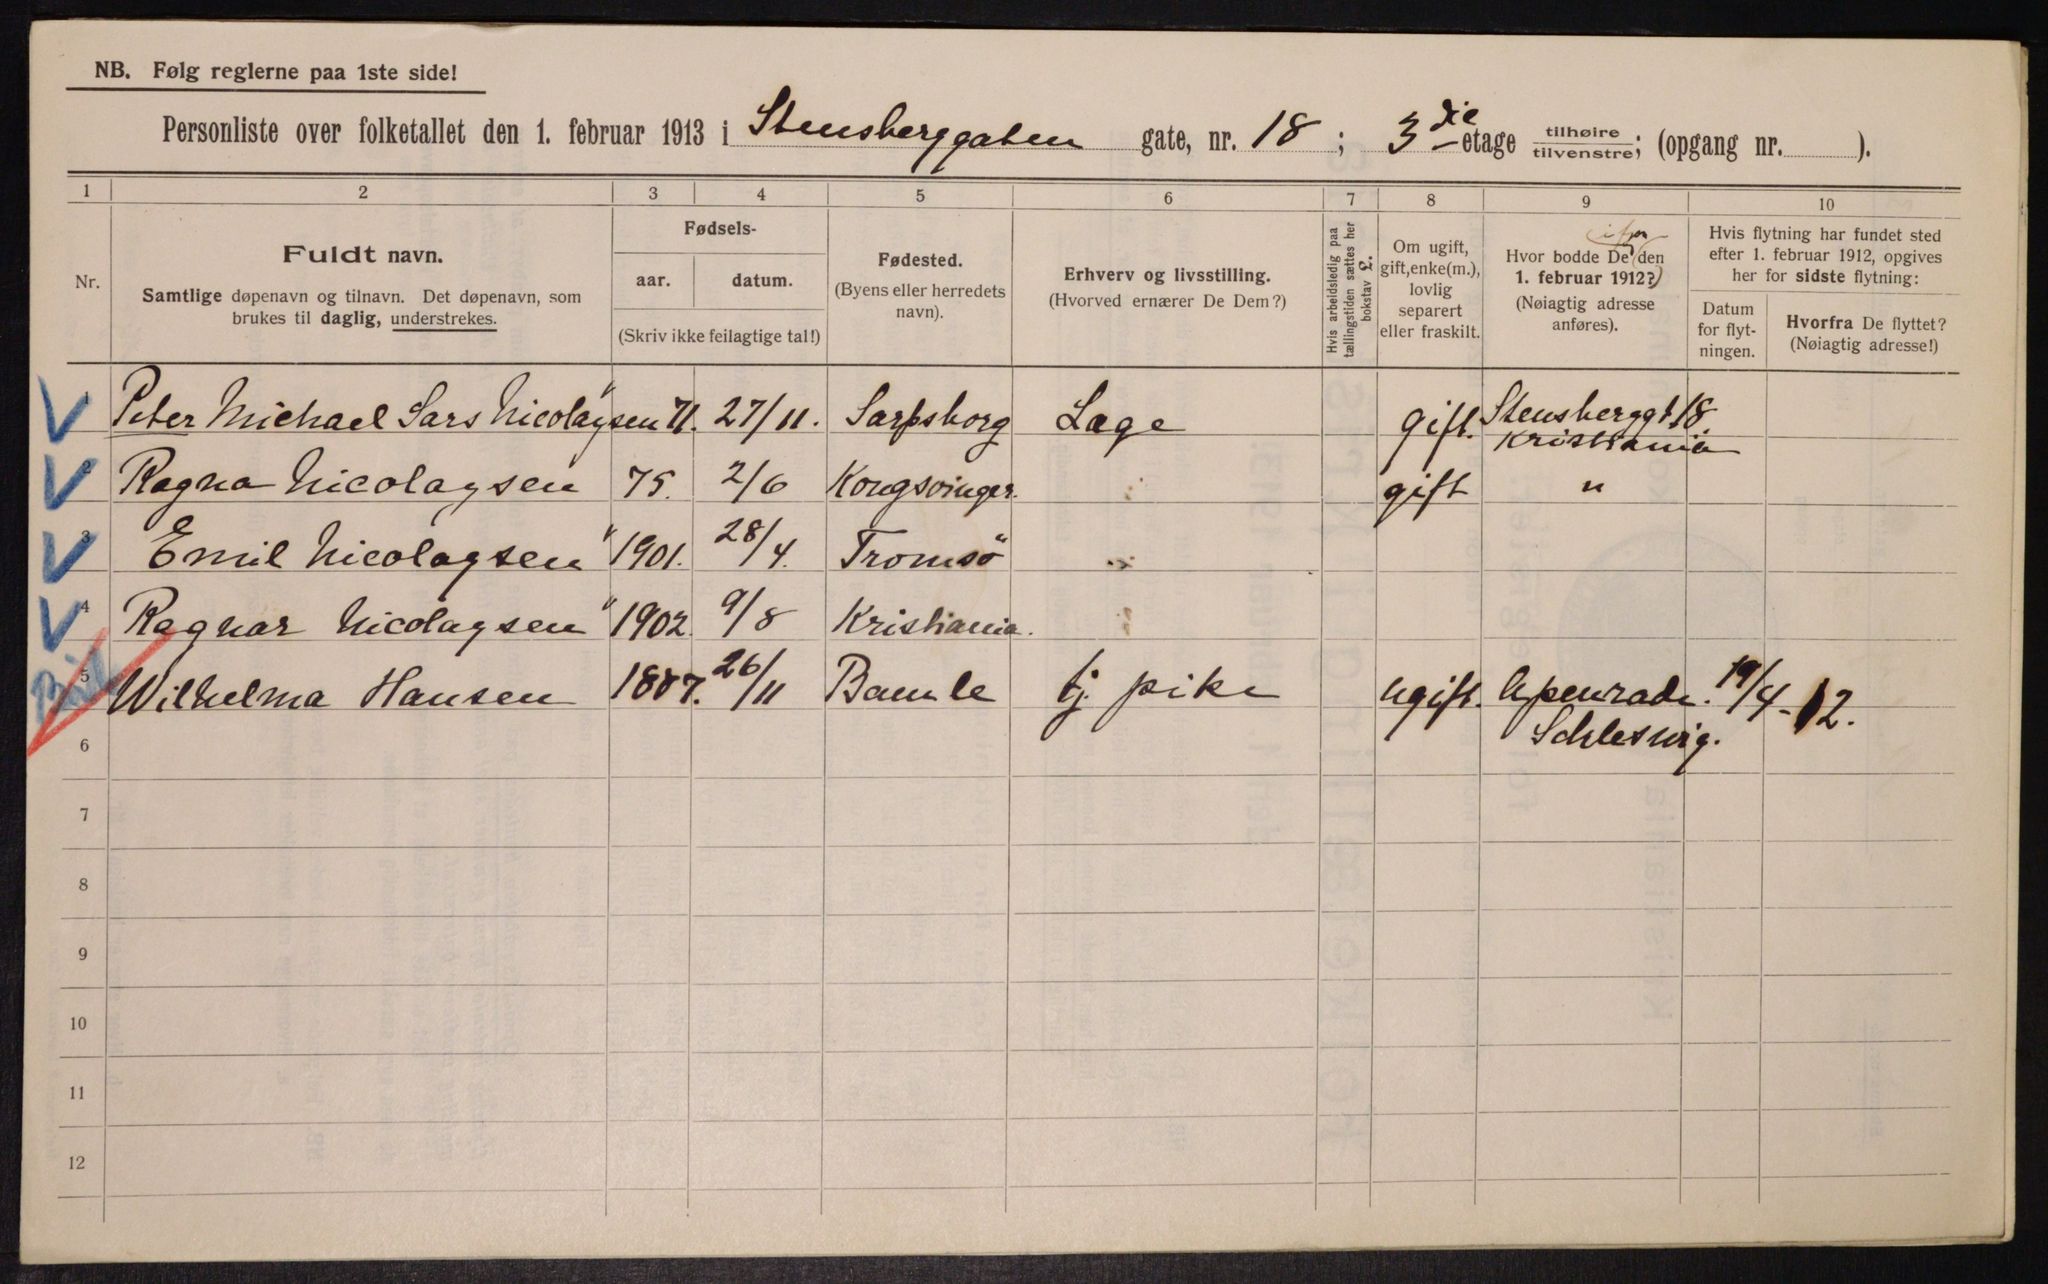 NB. Følg reglerne paa 1ste side!
Personliste over folketallet den 1. februar 1913 i Stensberggaten gate, nr. 18 ; 3die etage tilhøire tilvenstre; (opgang nr. ).
1 2 3 4 5 6 7 8 9 10
Nr.
Fuldt navn.
Samtlige døpenavn og tilnavn. Det døpenavn, som
brukes til daglig, understrekes.
Fødsels-
aar. datum.
(Skriv ikke feilagtige tal!)
Fødested.
(Byens eller herredets
navn).
Erhverv og livsstilling.
(Hvorved ernærer De Dem?)
Hvis arbeidsledig paa
tællingstiden sættes her
bokstav £.
Om ugift,
gift, enke(m.),
lovlig
separert
eller fraskilt.
Hvor bodde De den
1. februar 1912?
(Nøiagtig adresse
anføres).
Hvis flytning har fundet sted
efter 1. februar 1912, opgives
her for sidste flytning:
Datum
for flyt-
ningen.
Hvorfra De flyttet?
(Nøiagtig adresse!)
1 Peter Michael Sars Nicolaysen 71. 27/11. Sarpsborg Læge gift. Stensberggt 18.
Kristiania
2 Ragna Nicolaysen 75. 2/6 Kongsvinger. gift "
3 Emil Nicolaysen 1901. 28/4. Tromsö
4 Ragnar Nicolaysen 1902 9/8 Kristiania.
5 Wilhelma Hansen 1887. 26/11 Bamle tj pike ugift. Apenrade. 19/4-12.
Schleswig.
6
7
8
9
10
11
12